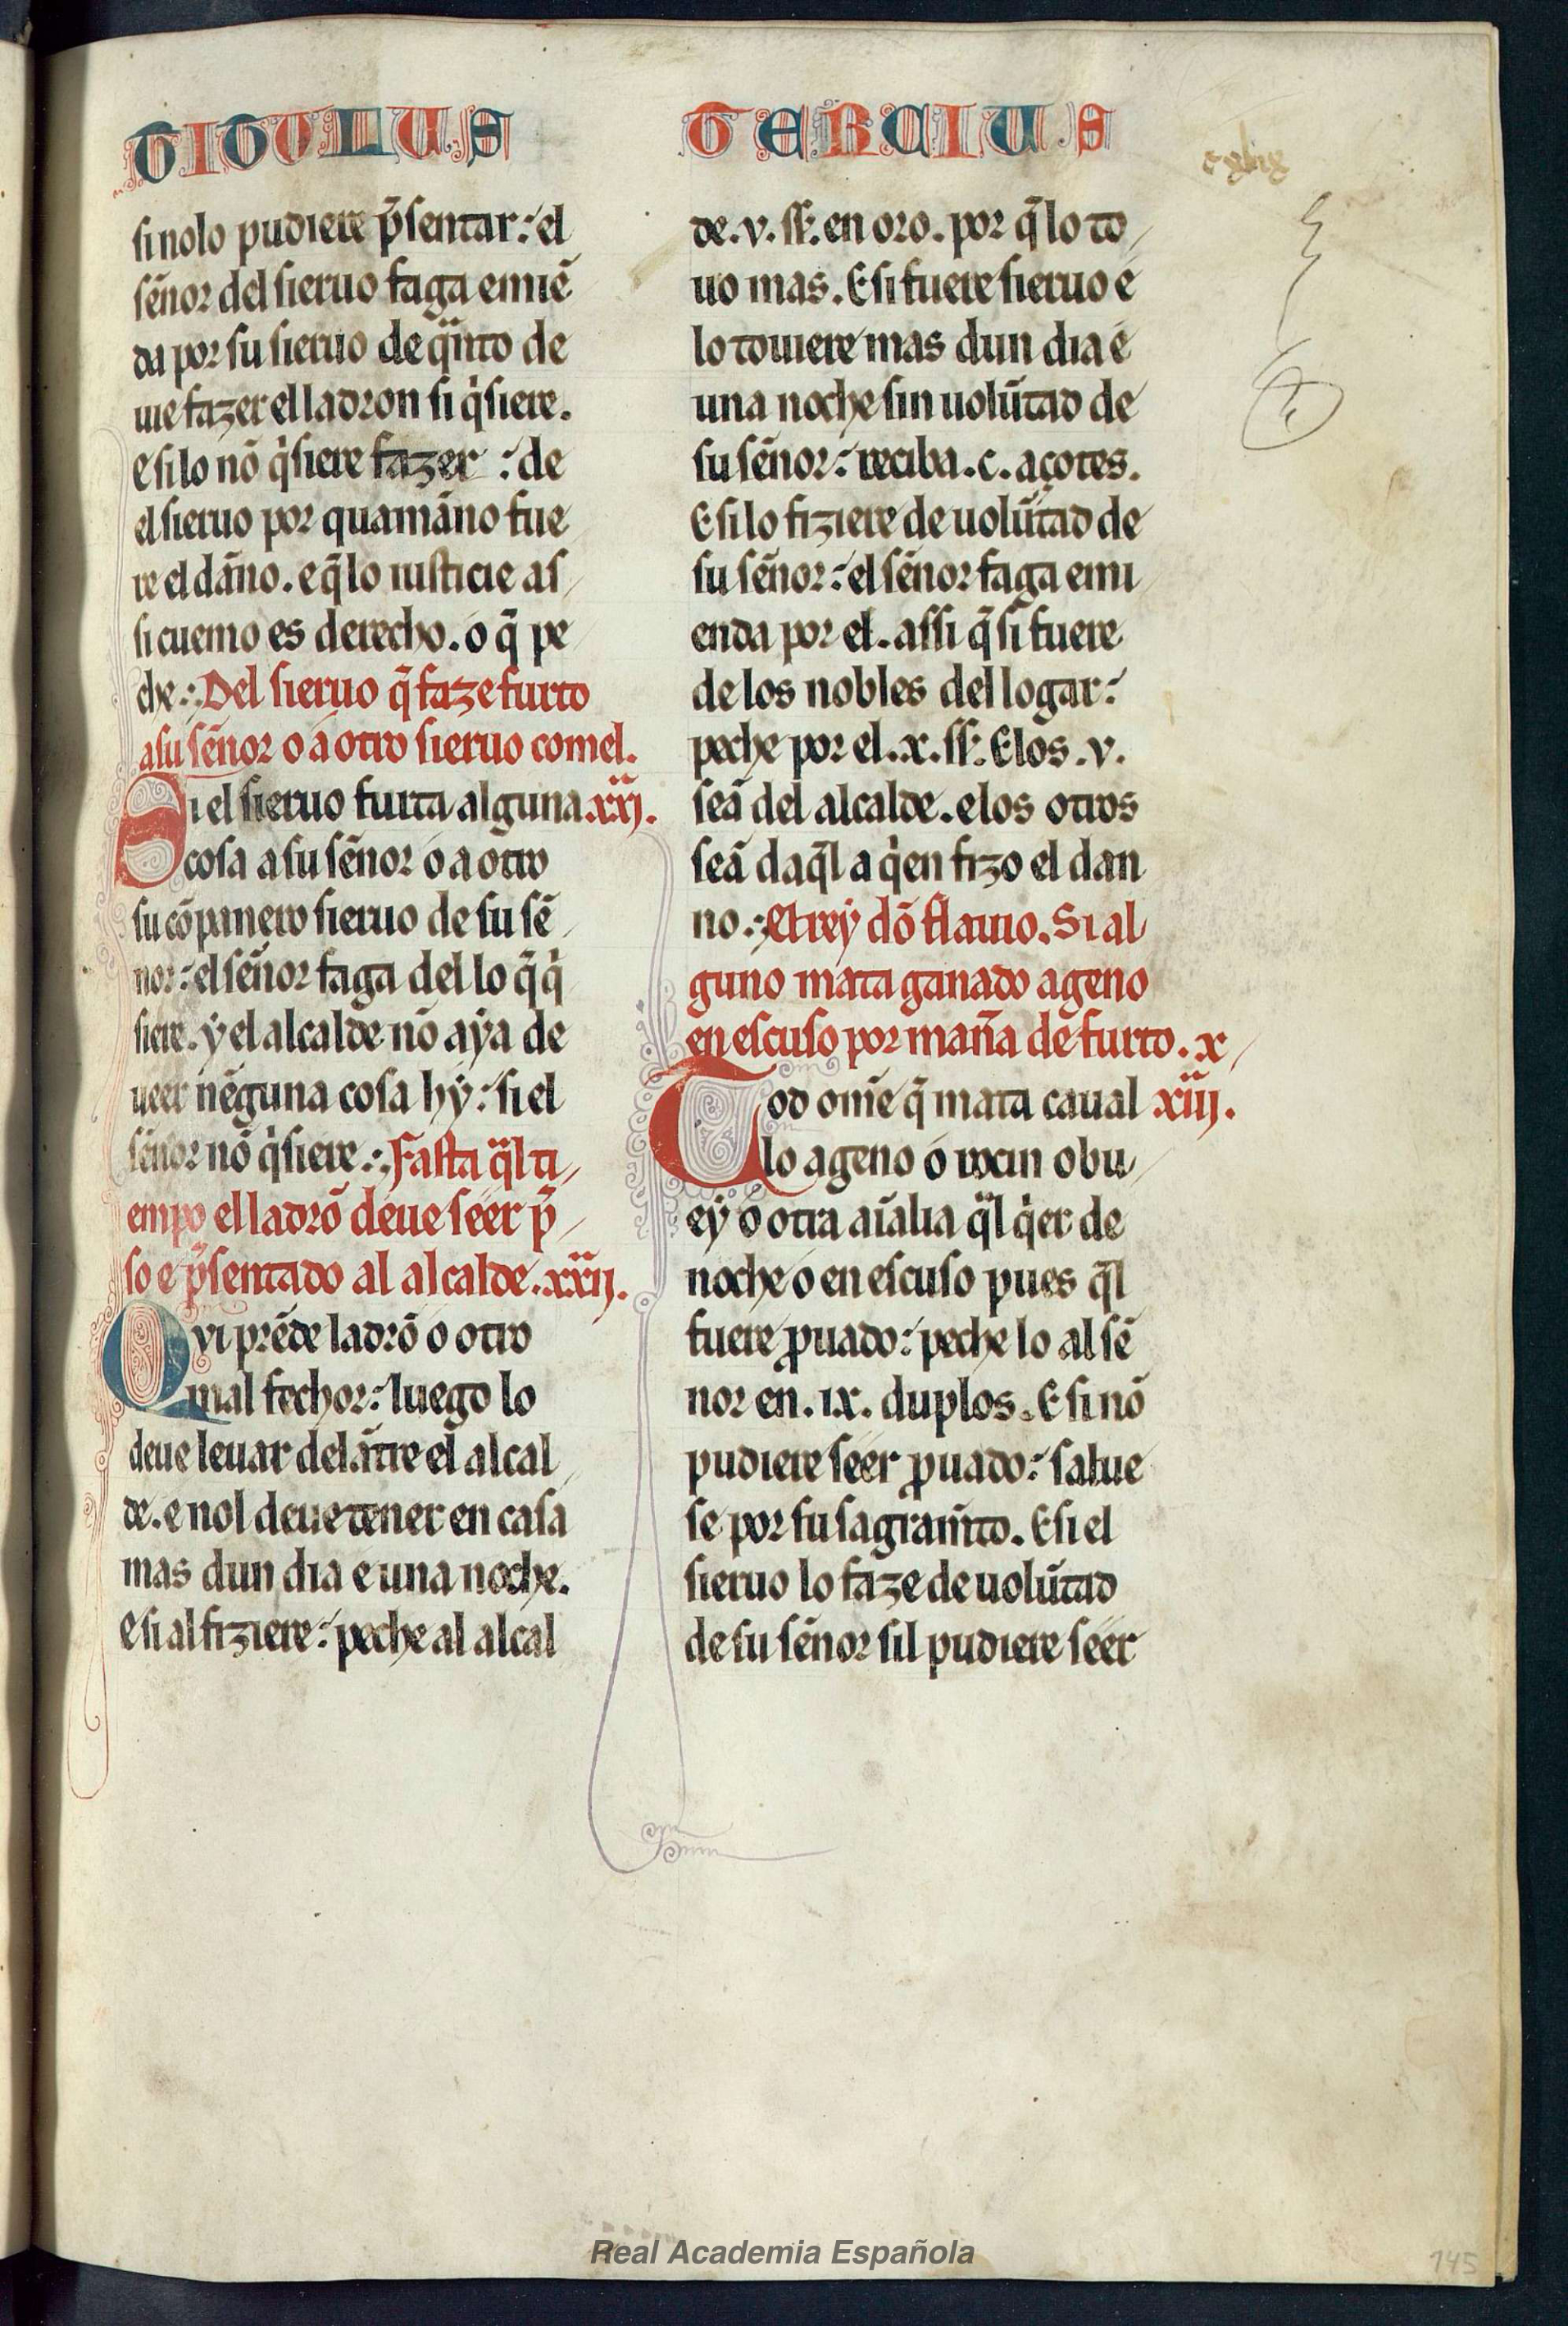 TITULUS TERCIUS
si nolo pudiere p̃sentar: el
sẽnor del sieruo faga emiẽ
da por su sieruo de q̃nto de
ue fazer el ladron si q̃siere.
e si lo nõ q̃siere fazer : de
el sieruo por quamãno fue
re el dãno. e q̃ lo iusticie as
si cuemo es derecho. o q̃ pe
che.: Del sieruo q̃ faze furto
a su sẽnor o a otro sieruo comel.
Si el sieruo furta alguna .xxi.
cosa a su sẽnor o a otro
su cõpanero sieruo de su sẽ
nor: el sẽnor faga del lo q̃ q̃
siere. ẏ el alcalde nõ aẏa de
ueer nẽguna cosa hẏ: si el
sẽnor nõ q̃siere.: Fasta q̃l ti
empo el ladrõ deue seer p̃
so e p̃sentado al alcalde. xxii.
Qvi prẽde ladrõ o otro
mal fechor: luego lo
deue leuar delãtre el alcal
de. e nol deue tener en casa
mas dun dia e una noche.
E si al fiziere: peche al alcal
de .v. ss̃. en oro. por q̃ lo to
uo mas. E si fuere sieruo e
lo touiere mas dun dia e
una noche sin uolũtad de
su sẽnor: reciba .c. açotes.
E si lo fiziere de uolũtad de
su sẽnor: el sẽnor faga emi
enda por el. assi q̃ si fuere
de los nobles del logar:
peche por el .x. ss̃. E los .v.
seã del alcalde. e los otros
seã daq̃l a q̃en fizo el dan
no.: El rey dõ flauio. Si al
guno mata ganado ageno
en escuso por mañ̃a de furto. x
Tod om̃e q̃ mata caual xiii.
lo ageno o rocin o bu
eẏ o otra aĩalia q̃l q̃er de
noche o en escuso pues q̃l
fuere ꝓuado: peche lo al sẽ
nor en .ix. duplos. E si nõ
pudiere seer ꝓuado: salue
se por su sagram̃to. E si el
sieruo lo faze de uolũtad
de su sẽnor sil pudiere seer
Real Academia Española
145